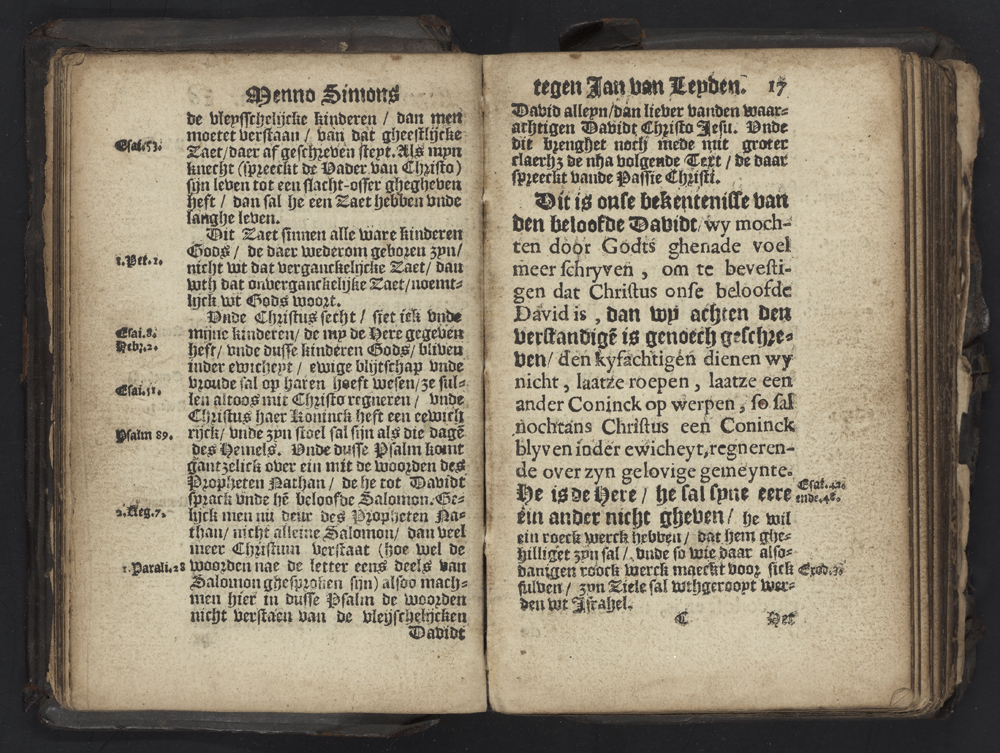 Menno Simons
de vleysschelijcke kinderen / dan men
moetet verstaan / van dat gheestlijcke
Esai.53.
Zaet/daer af geschreven steyt. Als myn
knecht (spreeckt de Vader van Christo)
sijn leven tot een slacht-offer ghegheven
heft / dan sal he een Zaet hebben unde
langhe leven.
Dit Zaet sinnen alle ware kinderen
Gods / de daer wederom geboren zyn/
1.Pet.1.
nicht wt dat verganckelijcke Zaet/ dan
wth dat onverganckelijke Zaet/noemt-
lijck wt Gods woort.
Unde Christus secht / siet ick unde
Esai.8.
mijne kinderen/ de my de Here gegeven
Hebr.2.
heft/ unde dusse kinderen Gods/ bliven
inder ewicheyt / ewige blijtschap unde
vroude sal op haren hoeft wesen/ze sul-
Esai.51.
len altoos mit Christo regneren / unde
Christus haer Koninck heft een eewich
Psalm 89.
rijck/ unde zyn stoel sal sijn als die dagē
des Hemels. Unde dusse Psalm komt
gantzelick over ein mit de woorden des
Propheten Nathan / de he tot Davidt
sprack unde hē beloofde Salomon. Ge-
2.Reg.7.
lijck men nu deur des Propheten Na-
than/ nicht alleine Salomon/ dan veel
meer Christum verstaat (hoe wel de
1.Parali.28
woorden nae de letter eens deels van
Salomon ghesproken sijn) alsoo mach-
men hier in dusse Psalm de woorden
nicht verstaen van de vleijschelijcken
Davidt
tegen Jan van Leyden. 17
David alleyn/dan liever vanden waar-
achtigen Davidt Christo Jesu. Unde
dit brenghet noch mede mit groter
claerhz de nha volgende Text / de daar
spreeckt vande Passie Christi.
Dit is onse bekentenisse van
den beloofde Davidt, wy moch-
ten door Godts ghenade voel
meer schryven, om te bevesti-
gen dat Christus onse beloofde
David is, dan wy achten den
verstandigē is genoech geschre-
ven/ den kyfachtigen dienen wy
nicht, laatze roepen, laatze een
ander Coninck op werpen, so sal
nochtans Christus een Coninck
blyven inder ewicheyt, regneren-
de over zyn gelovige gemeynte.
He is de Here / he sal syne eere
Esai.42.
ende.48.
ein ander nicht gheven / he wil
ein roeck werck hebben / dat hem ghe-
hilliget zyn sal / unde so wie daar also-
danigen roock werck maeckt voor sick
Exod.30
sulven / zyn Ziele sal wthgeroopt wer-
den wt Israhel.
C
Het